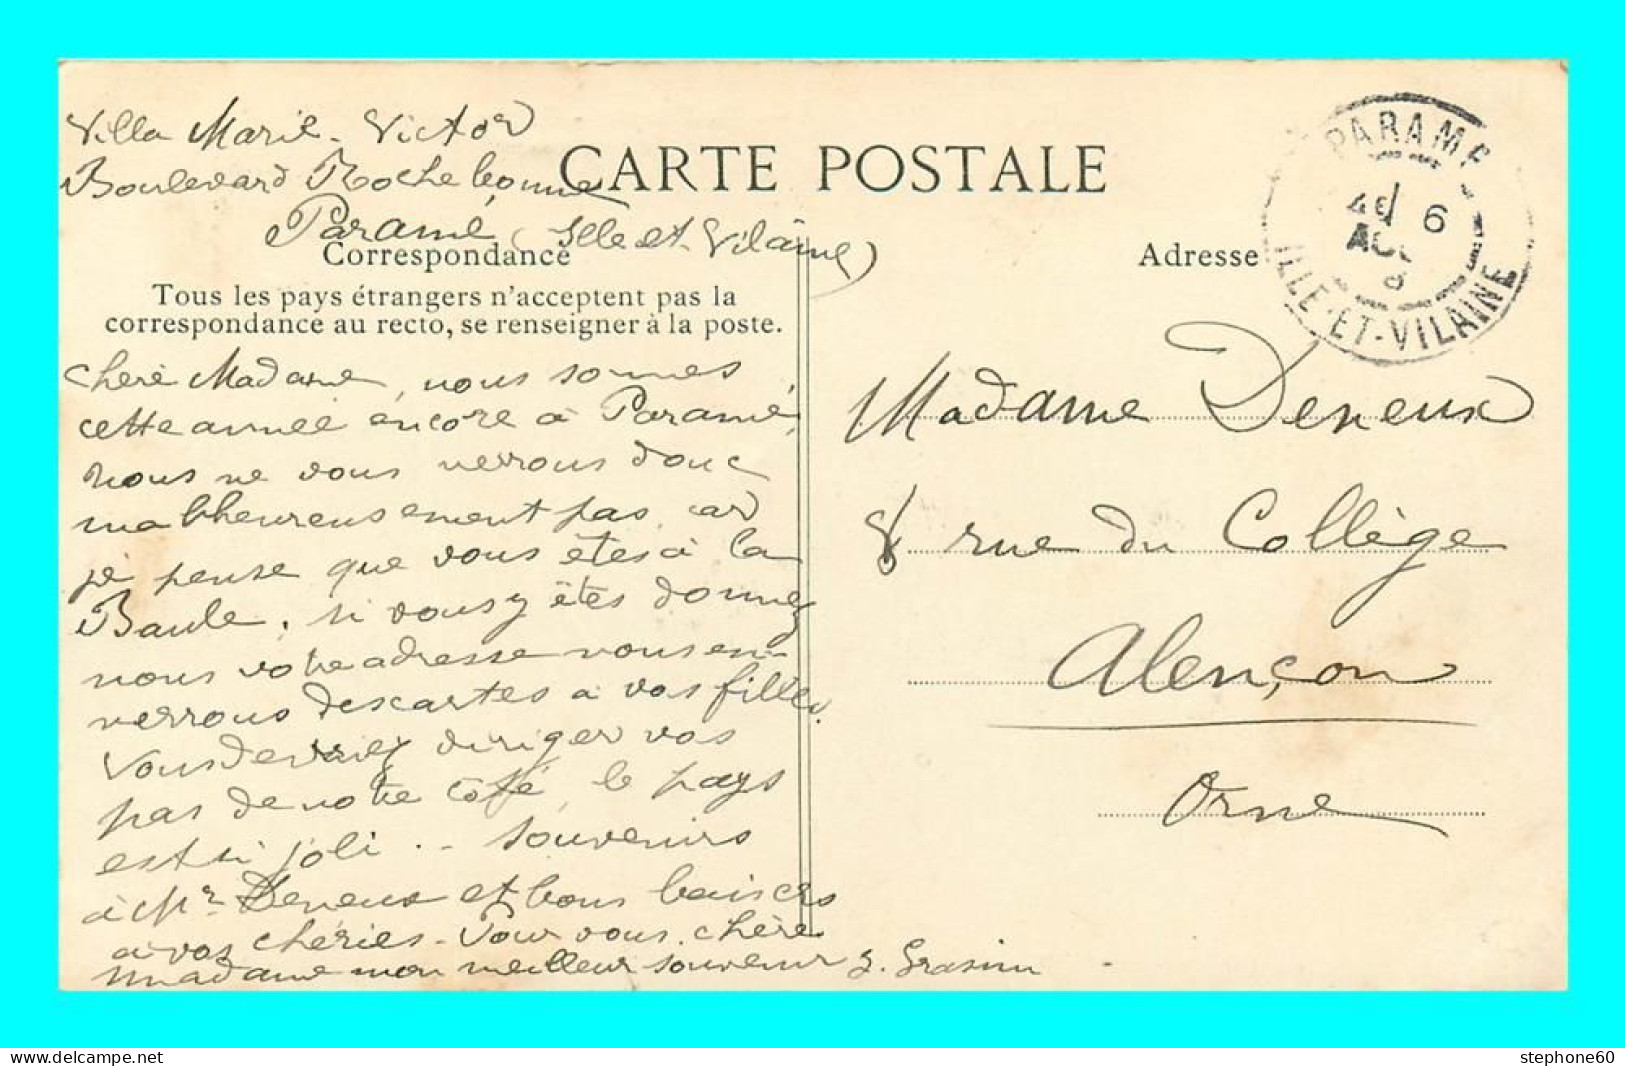 Villa Marie-Victor
Boulevard Rochebonne
Paramé (Ille et Vilaine)
CARTE POSTALE
Correspondance
Tous les pays étrangers n'acceptent pas la
correspondance au recto, se renseigner à la poste.
Chère Madame, nous sommes
cette année encore à Paramé,
nous ne vous verrons donc
malheureusement pas, car
je pense que vous êtes à la
Baule, si vous y êtes donnez
nous votre adresse nous en-
verrons des cartes à vos filles.
Vous devriez diriger vos
pas de notre côté, le pays
est si joli... Souvenirs
à Mr Deneux et bons baisers
à vos chéries - Pour vous chère
madame mon meilleur souvenir
PARAMÉ
6
AOU
8
ILLE-ET-VILAINE
Adresse
Madame Deneux
8 rue du Collège
Alençon
Orne
stephone60